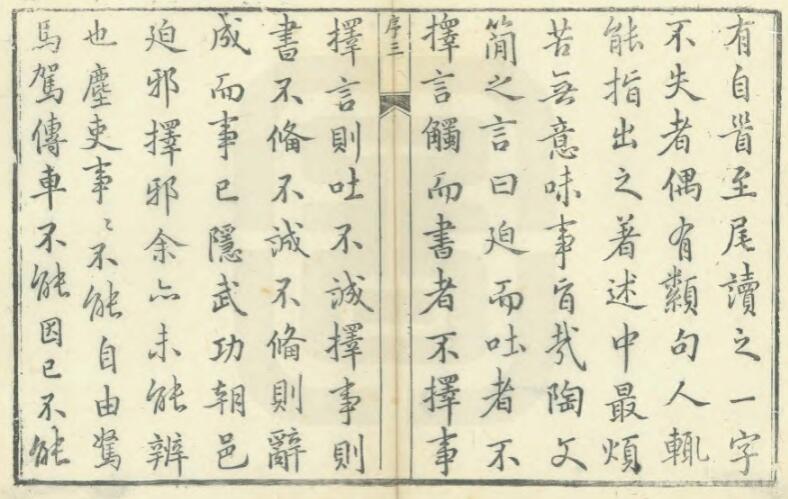 有自首至尾讀之一字
不失者偶有纇句人輒
能指出之著述中最煩
苦無意味事旨哉陶文
簡之言曰迫而吐者不
擇言觸而書者不擇事
序三
擇言則吐不誠擇事則
書不俻不誠不俻則辭
成而事已隱武功朝邑
迫邪擇邪余亦未能辨
也塵吏事〻不能自由駑
馬駕傳車不能因已不能